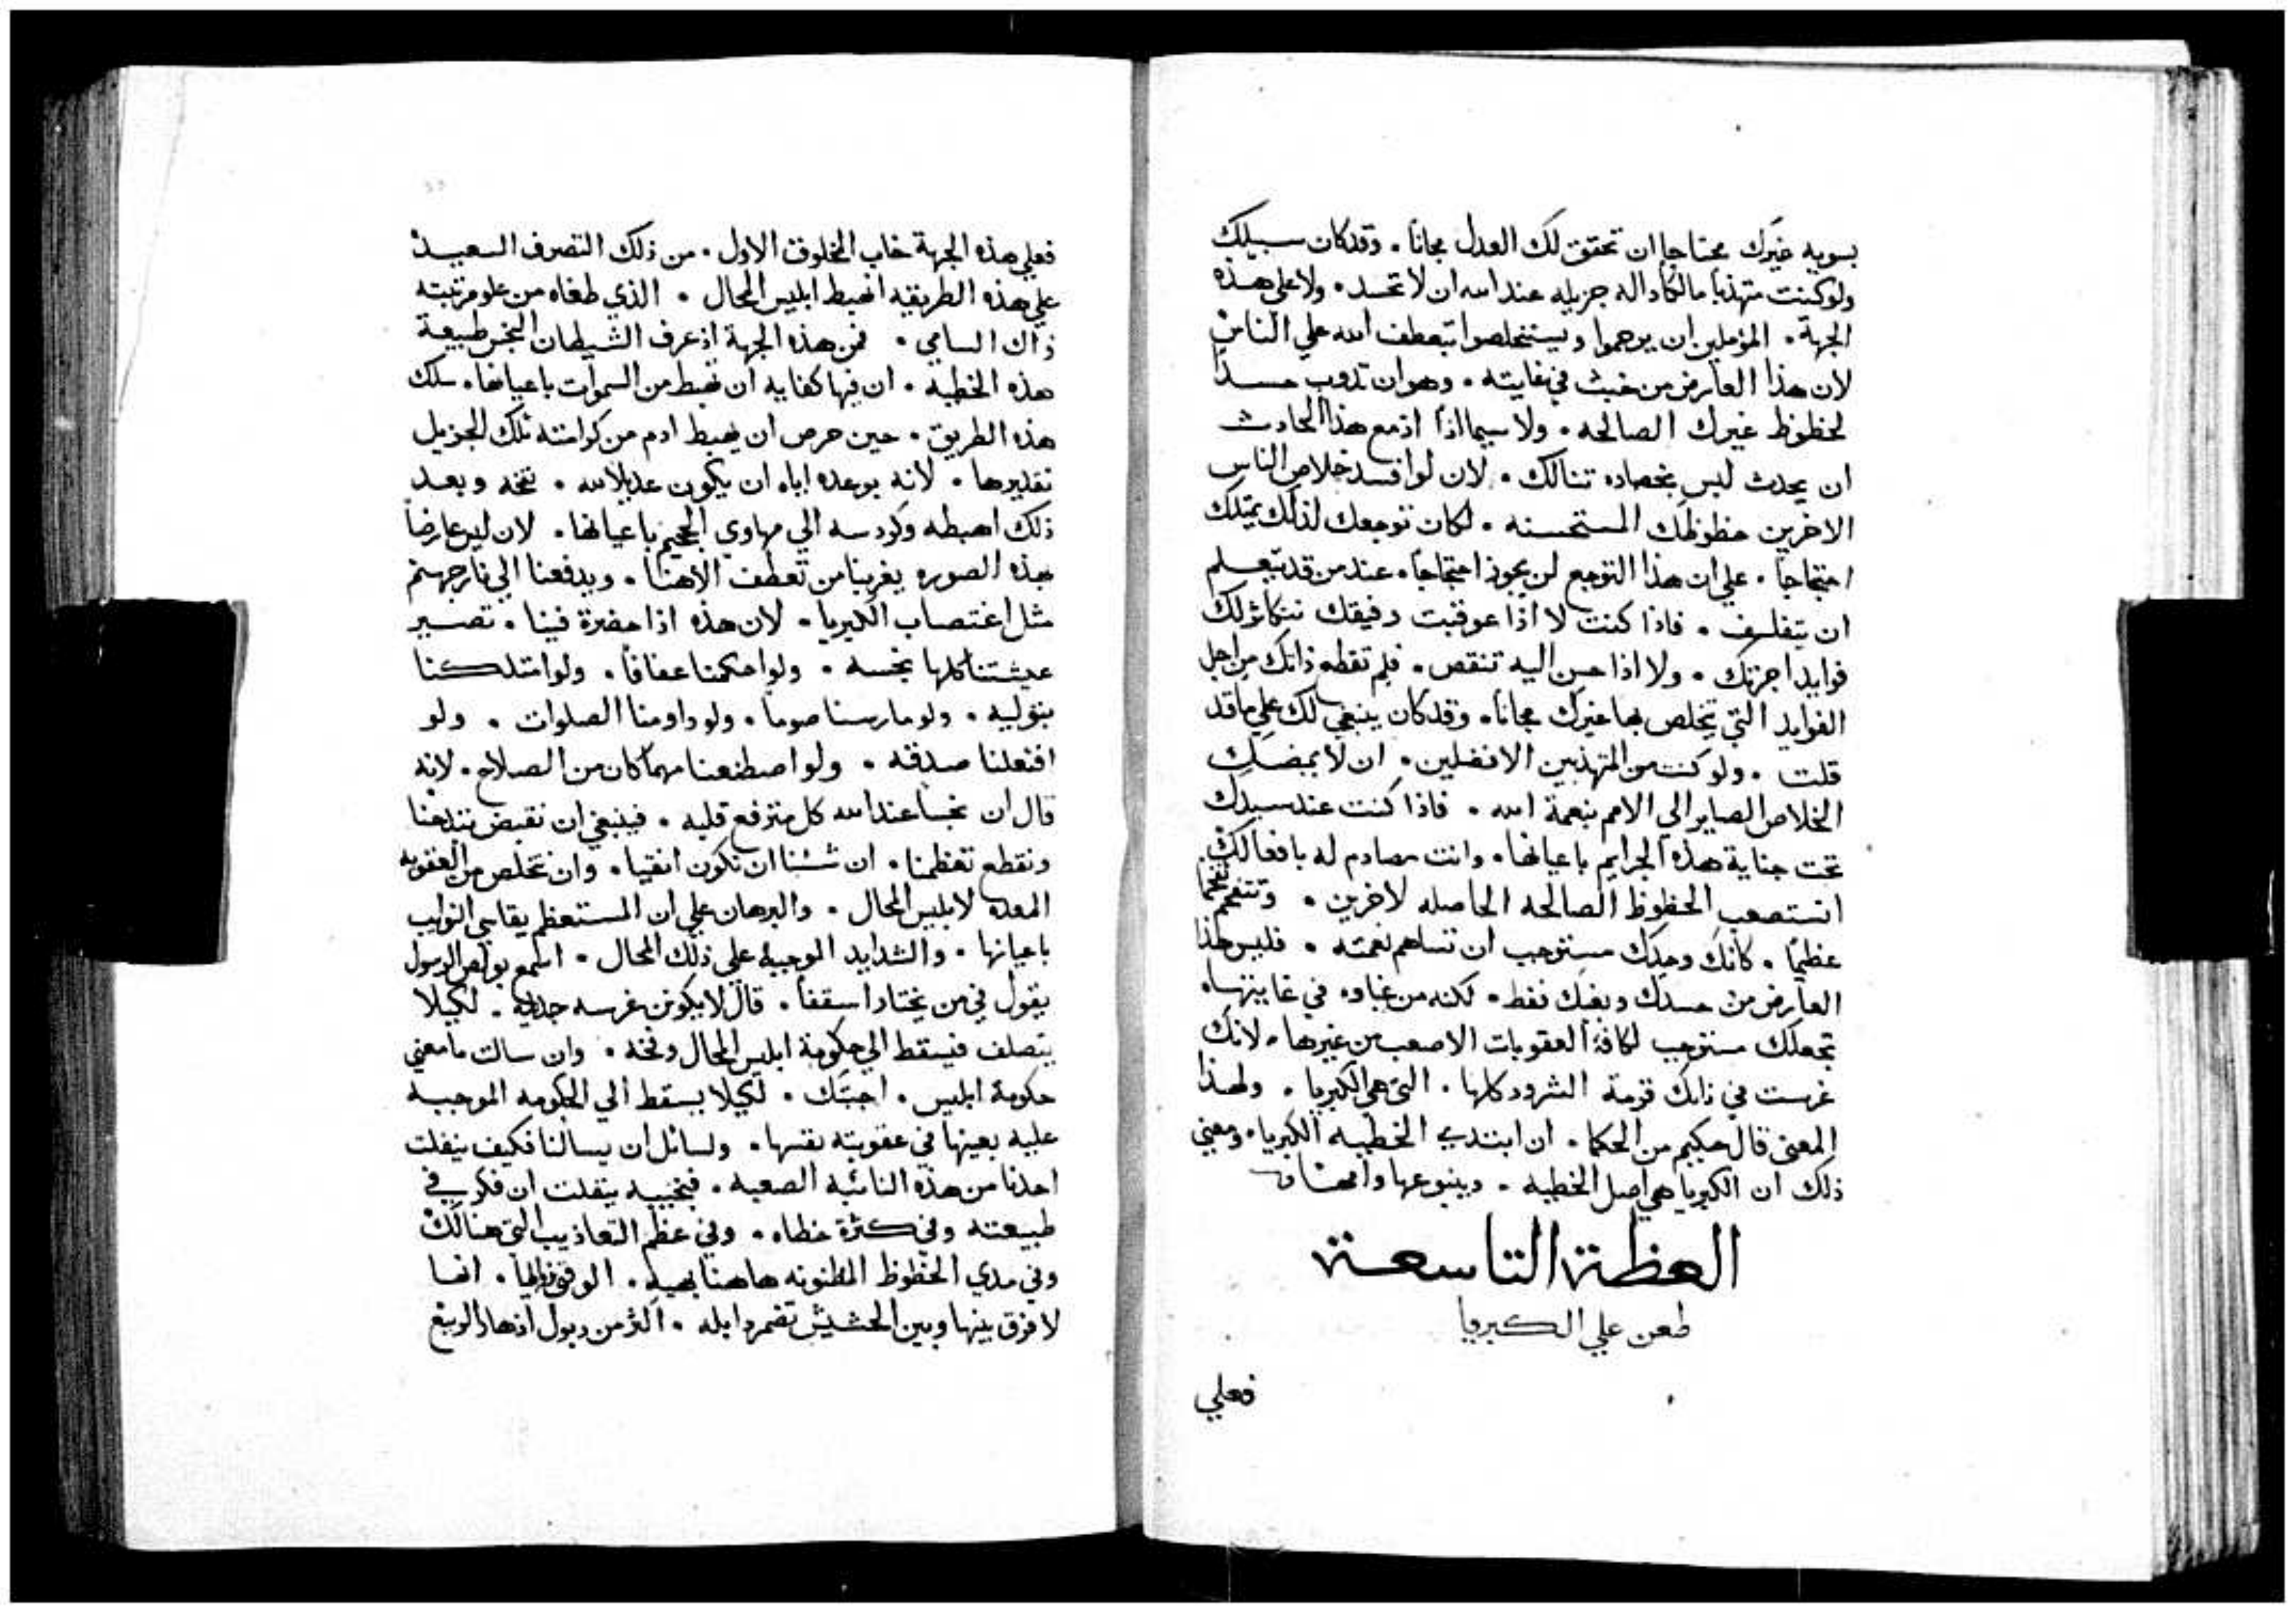 بسويه غيرك محتاجا ان تحقق لك العدل مجاناً . وقد كان سبيلك
ولو كنت متهذباً مالكاً داله جزيله عند الله ان لا تحسد . ولا على هذه
الجهة . المؤملين ان يرحموا ويستخلصوا بتعطف الله علي الناس
لان هذا العارض من خبث في غايته . وهو ان تذوب حسداً
لحظوظ غيرك الصالحه . ولا سيما اذا ازمع هذا الحادث
ان يحدث ليس بخصاره تنالك . لان لو افسد خلاص الناس
الاخرين حظوظك المستحسنه . لكان توجعك لذلك يمتلك
احتجاجاً . علي ان هذا التوجع لن يحوز احتجاجاً . عند من قد تعلم
ان يتفلسف . فاذا كنت لا اذا عوقبت رفيقك تتكاثر لك
فوايد اجرتك . ولا اذا حسن اليه تنقص . فلم تقطع ذاتك من اجل
الفوايد التي يتخلص بها غيرك مجاناً . وقد كان ينبغي لك علي ما قد
قلت . ولو كنت من المتهذبين الافضلين . ان لا يمضك
الخلاص الصاير الي الامم بنعمة الله . فاذا كنت عند سيدك
تحت جناية هذه الجرايم باعيانها . وانت مصادم له بافعالك
اتستصعب الحظوظ الصالحه الحاصله لاخرين . وتتفخم تفخما
عظيماً . كانك وحدك مستوجب ان تساهم نعمته . فليس هذا
العارض من حسدك وبغيك فقط . لكنه من غباوه في غايتها .
تجعلك مستوجب لكافة العقوبات الاصعب من غيرها . لانك
غرست في ذاتك قرمة الشرور كلها . التي هي الكبريا . ولهذا
المعنى قال حكيم من الحكما . ان ابتدي الخطيه الكبريا . ومعني
ذلك ان الكبريا هي اصل الخطيه . وينبوعها وامها
العظة التاسعة
طعن علي الكبريا
فعلي
فعلي هذه الجهة خاب المخلوق الاول . من ذلك التصرف السعيد
علي هذه الطريقه اهبط ابليس المحال . الذي طغاه من علو مرتبته
ذاك السامي . فمن هذه الجهة اذ عرف الشيطان النجس طبيعة
هذه الخطيه . ان فيها كفايه ان تهبط من السموات باعيانها . سلك
هذه الطريق . حين حرص ان يهبط ادم من كرامته تلك الجزيل
تقديرها . لانه بوعده اياه ان يكون عديلا لله . نفخه وبعد
ذلك اهبطه وكردسه الي مهاوي الجحيم باعيانها . لان ليس عارضاً
بهذه الصوره يغربنا من تعطف الاهنا . ويدفعنا الي نار جهنم
مثل اغتصاب الكبريا . لان هذه اذا حضرة فينا . تصير
عيشتنا كلها نجسه . ولو احكمنا عفافاً . ولو امتلكنا
بتوليه . ولو مارسنا صوماً . ولو داومنا الصلوات . ولو
افتعلنا صدقه . ولو اصطنعنا مهما كان من الصلاح . لانه
قال ان نجساً عند الله كل مترفع قلبه . فينبغي ان نقبض تبذخنا
ونقطع تعظمنا . ان شئنا ان نكون انقيا . وان نتخلص من العقوبه
المعده لابليس المحال . والبرهان علي ان المستعظم يقاسي النوايب
باعيانها . والشدايد الموجبه على ذلك المحال . اسمع بولص الرسول
يقول في من يختار اسقفاً . قال لا يكون غرسه جديده . لكيلا
يتصلف فيسقط الي حكومة ابليس المحال وفخه . وان سالت ما معني
حكومة ابليس . اجبتك . لكيلا يسقط الي الحكومه الموجبه
عليه بعينها في عقوبته نفسها . ولسائل ان يسالنا فكيف يتفلت
احدنا من هذه النائبه الصعبه . فنجيبه يتفلت ان فكر في
طبيعته وفي كثرة خطاه . وفي عظم التعاذيب التي هنالك
وفي مدي الحظوظ المظنونه هاهنا بهيه . الوقتي زوالها . انها
لا فرق بينها وبين الحشيش تضمر ذابله . اكثر من دبول ازهار الربيع